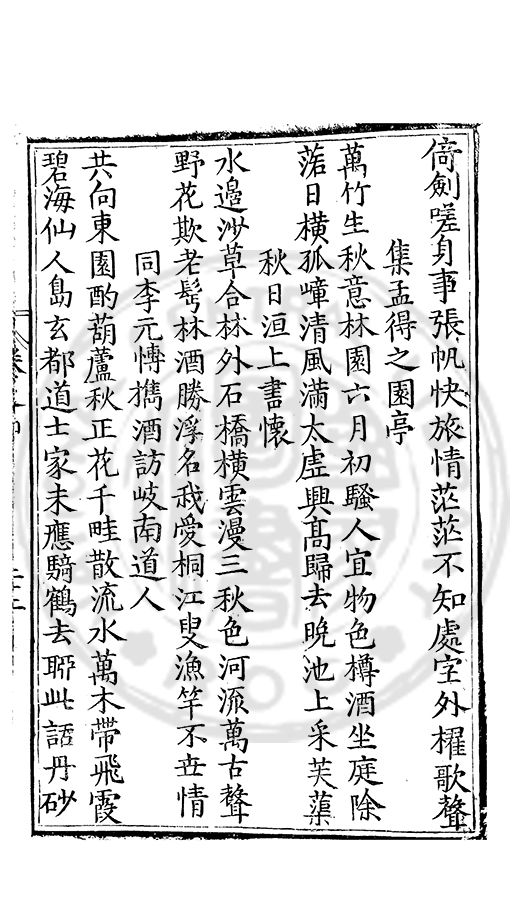 倚劍嗟身事張帆快旅情茫茫不知處空外櫂歌聲
集孟得之園亭
萬竹生秋意林園六月初騷人宜物色樽酒坐庭除
落日橫孤嶂清風滿太虛興髙歸去晚池上采芙蕖
秋日洹上書懷
水邊沙草合林外石橋橫雲漫三秋色河流萬古聲
野花欺老髩林酒勝浮名我愛桐江叟漁竿不世情
同李元博携酒訪岐南道人
共向東園酌葫蘆秋正花千畦散流水萬木帶飛霞
碧海仙人島玄都道士家未應騎鶴去聊此話丹砂